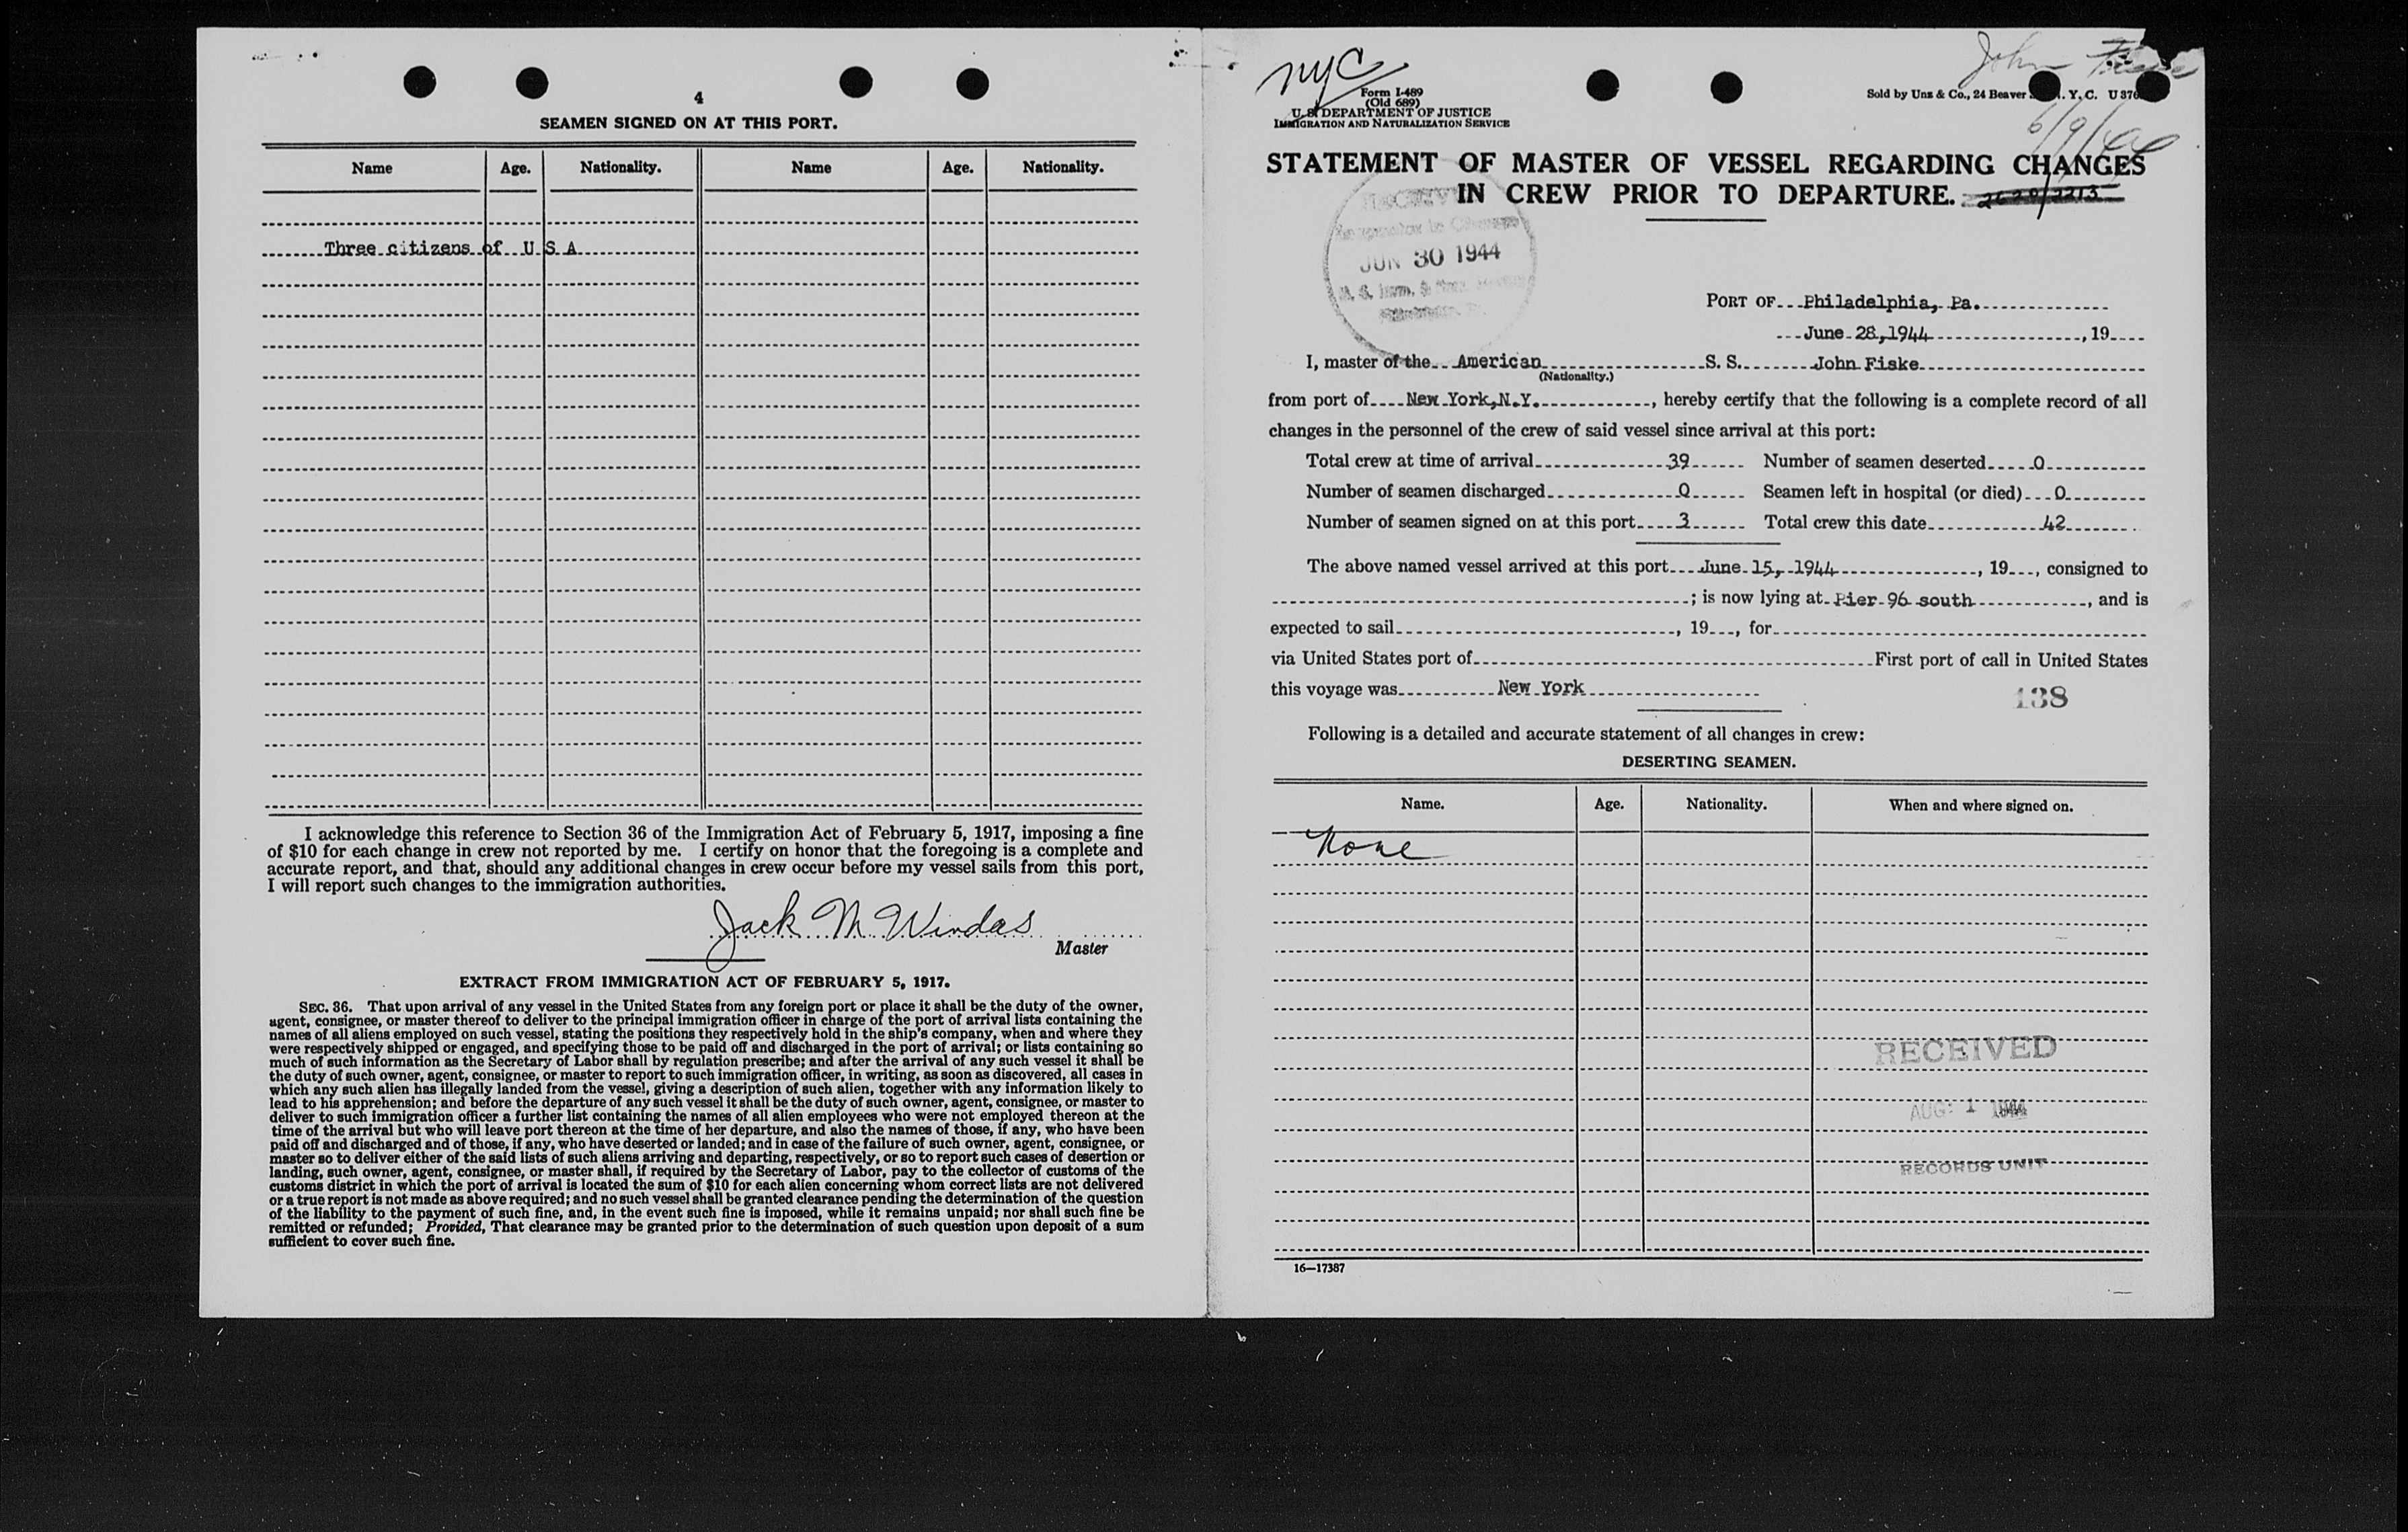 4
SEAMEN SIGNED ON AT THIS PORT.
Name Age. Nationality. Name Age. Nationality.
Three citizens of U S A
I acknowledge this reference to Section 36 of the Immigration Act of February 5, 1917, imposing a fine
of $10 for each change in crew not reported by me. I certify on honor that the foregoing is a complete and
accurate report, and that, should any additional changes in crew occur before my vessel sails from this port,
I will report such changes to the immigration authorities.
Jack M Windas
Master
EXTRACT FROM IMMIGRATION ACT OF FEBRUARY 5, 1917.
SEC. 36. That upon arrival of any vessel in the United States from any foreign port or place it shall be the duty of the owner,
agent, consignee, or master thereof to deliver to the principal immigration officer in charge of the port of arrival lists containing the
names of all aliens employed on such vessel, stating the positions they respectively hold in the ship's company, when and where they
were respectively shipped or engaged, and specifying those to be paid off and discharged in the port of arrival; or lists containing so
much of such information as the Secretary of Labor shall by regulation prescribe; and after the arrival of any such vessel it shall be
the duty of such owner, agent, consignee, or master to report to such immigration officer, in writing, as soon as discovered, all cases in
which any such alien has illegally landed from the vessel, giving a description of such alien, together with any information likely to
lead to his apprehension; and before the departure of any such vessel it shall be the duty of such owner, agent, consignee, or master to
deliver to such immigration officer a further list containing the names of all alien employees who were not employed thereon at the
time of the arrival but who will leave port thereon at the time of her departure, and also the names of those, if any, who have been
paid off and discharged and of those, if any, who have deserted or landed; and in case of the failure of such owner, agent, consignee, or
master so to deliver either of the said lists of such aliens arriving and departing, respectively, or so to report such cases of desertion or
landing, such owner, agent, consignee, or master shall, if required by the Secretary of Labor, pay to the collector of customs of the
customs district in which the port of arrival is located the sum of $10 for each alien concerning whom correct lists are not delivered
or a true report is not made as above required; and no such vessel shall be granted clearance pending the determination of the question
of the liability to the payment of such fine, and, in the event such fine is imposed, while it remains unpaid; nor shall such fine be
remitted or refunded; Provided, That clearance may be granted prior to the determination of such question upon deposit of a sum
sufficient to cover such fine.
nyc
John
Form I-489
(Old 689)
U. S. DEPARTMENT OF JUSTICE
IMMIGRATION AND NATURALIZATION SERVICE
Sold by Unz & Co., 24 Beaver Y. C. U 376
6/9/44
STATEMENT OF MASTER OF VESSEL REGARDING CHANGES
IN CREW PRIOR TO DEPARTURE.
JUN 30 1944
PORT OF Philadelphia, Pa.
June 28, 1944, 19
I, master of the American S. S. John Fiske
(Nationality.)
from port of New York, N.Y., hereby certify that the following is a complete record of all
changes in the personnel of the crew of said vessel since arrival at this port:
Total crew at time of arrival 39 Number of seamen deserted 0
Number of seamen discharged 0 Seamen left in hospital (or died) 0
Number of seamen signed on at this port 3 Total crew this date 42
The above named vessel arrived at this port June 15, 1944, 19, consigned to
; is now lying at Pier 96 south, and is
expected to sail, 19, for
via United States port of First port of call in United States
this voyage was New York
138
Following is a detailed and accurate statement of all changes in crew:
DESERTING SEAMEN.
Name. Age. Nationality. When and where signed on.
None
RECEIVED
AUG 1 1944
RECORDS UNIT
16—17387